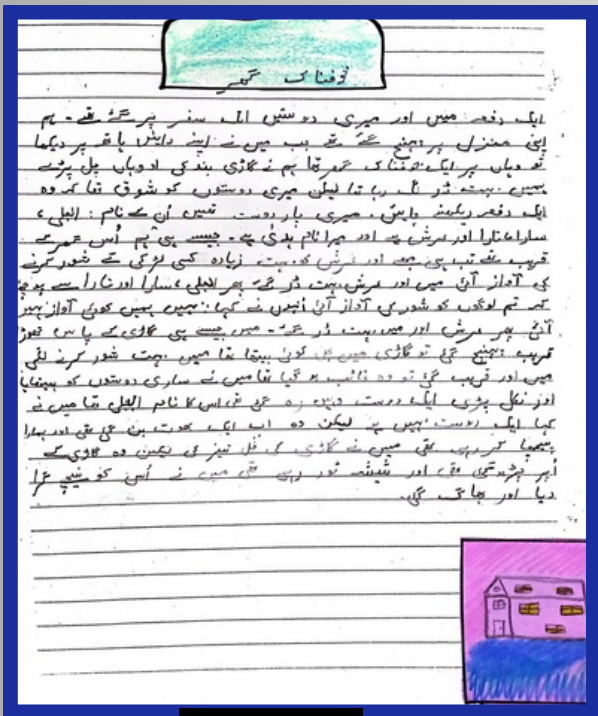 خوفناک گھر
ایک دفعہ میں اور میری دوستیں ایک سفر پر گئے تھے۔ ہم
اپنی منزل پر پہنچ گئے تھے جب میں نے اپنے دایئں ہاتھ پر دیکھا
تو وہاں پر ایک خوفناک گھر تھا ہم نے گاڑی بند کی اور وہاں چل پڑے
ہمیں بہت ڈر لگ رہا تھا لیکن میری دوستوں کو شوق تھا کہ وہ
ایک دفعہ دیکھنے جایئں۔ میری چار دوست تھیں اُن کے نام:
سارا، تارا اور عرش ہے اور میرا نام ہدیٰ ہے۔ جیسے ہی ہم اُس گھر کے
قریب گئے تب ہی مجھے اور عرش کو بہت زیادہ کسی لڑکی کے شور کرنے
کی آواز آئی میں اور عرش بہت ڈر گئے پھر سارا اور تارا سے پوچھا
کہ تم لوگوں کو شور کی آواز آئی انہوں نے کہا: نہیں ہمیں کوئی آواز نہیں
آئی پھر عرش اور میں بہت ڈر گئے۔ میں جیسے ہی گاڑی کے پاس تھوڑا
قریب پہنچ گئی تو گاڑی میں کوئی بیٹھا تھا میں بہت شور کرنے لگی
میں اور قریب گئی تو وہ غائب ہو گیا تھا میں نے ساری دوستوں کو بیٹھایا
اور نکل پڑی ایک دوست وہیں رہ گئی تھی اس کا نام تھا میں نے
کہا ایک دوست نہیں ہے لیکن وہ اب ایک بھوت بن گئی تھی اور ہمارا
پیچھا کر رہی تھی میں نے گاڑی کی فل تیز کی لیکن وہ گاڑی کے
اُپر چڑھ گئی تھی اور شیشہ توڑ رہی تھی میں نے اُس کو نیچے گرا
دیا اور بھاگ گی۔